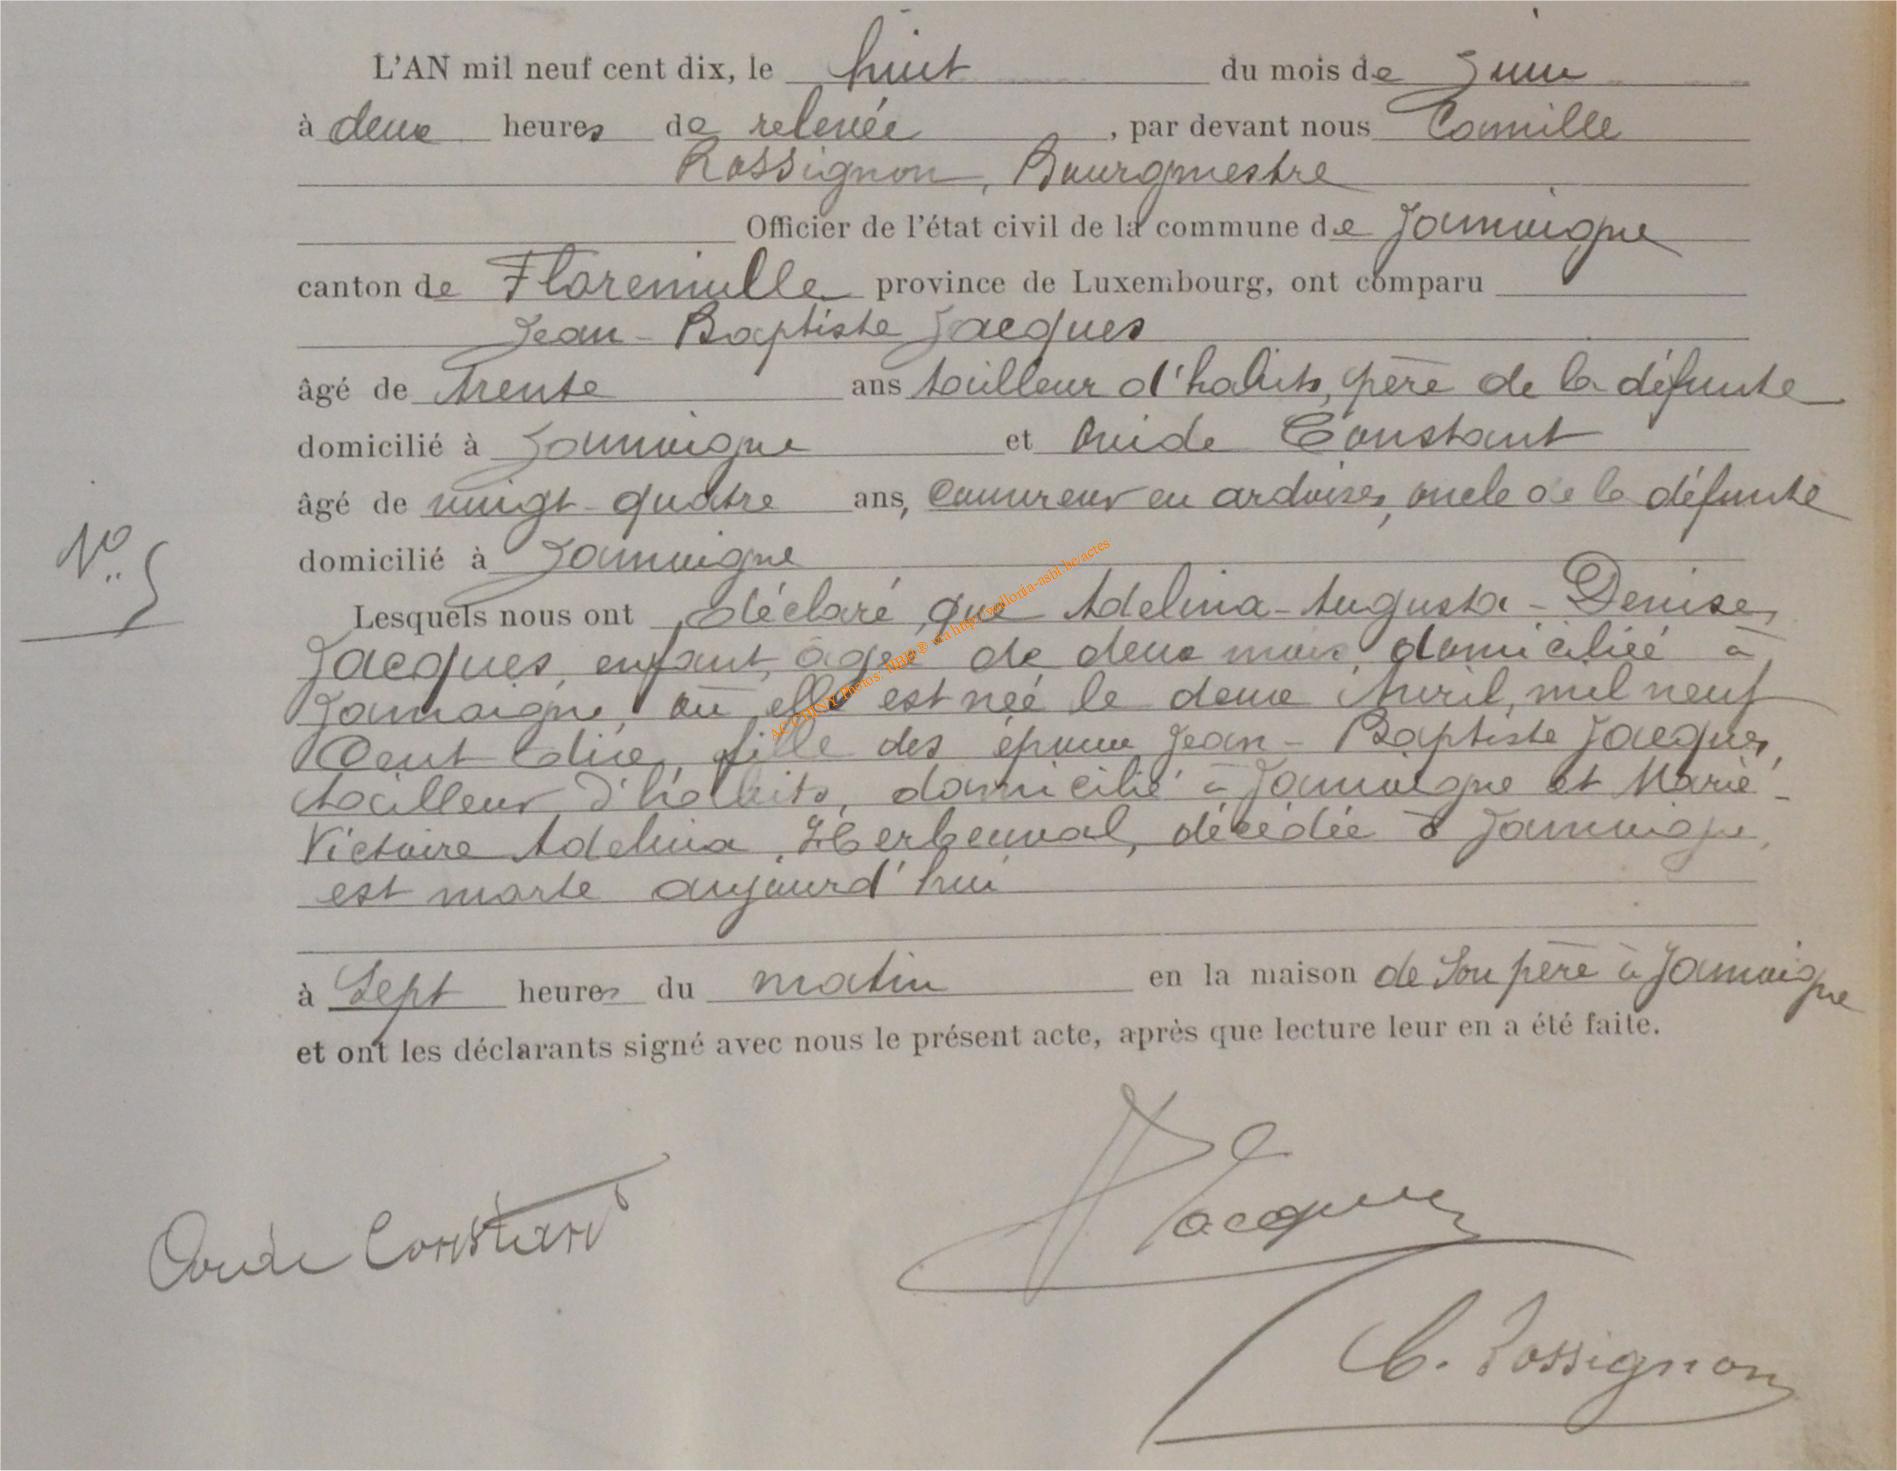 L'AN mil neuf cent dix, le huit du mois de Juin
à deux heures de relevée, par devant nous Camille
Rossignon, Bourgmestre
Officier de l'état civil de la commune de Jamoigne
canton de Florenville province de Luxembourg, ont comparu
Jean-Baptiste Jacques
âgé de trente ans tailleur d'habits, père de la défunte
domicilié à Jamoigne et Ovide Constant
âgé de vingt-quatre ans, couvreur en ardoises, oncle de la défunte
domicilié à Jamoigne
N° 5
Lesquels nous ont déclaré que Adelina-Augusta-Denise,
Jacques, enfant, âgée de deux mois, domiciliée à
Jamoigne, où elle est née le deux Avril, mil neuf
Cent dix, fille des époux Jean-Baptiste Jacques,
tailleur d'habits, domicilié à Jamoigne et Marie-
Victoire Adelina Herbeuval, décédée à Jamoigne,
est morte aujourd'hui
à Sept heures du matin en la maison de son père à Jamoigne
et ont les déclarants signé avec nous le présent acte, après que lecture leur en a été faite.
Jacques
Ovide Constant
C. Rossignon